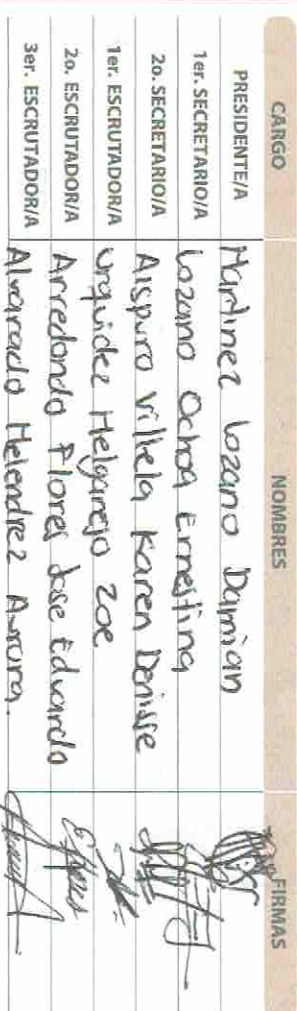 CARGO NOMBRES FIRMAS
PRESIDENTE/A Martinez Lozano Damian
1er. SECRETARIO/A Lozano Ochoa Ernestina
2o. SECRETARIO/A Aispuro Villela Karen Denisse
1er. ESCRUTADOR/A Urquidez Melgarejo Zoe
2o. ESCRUTADOR/A Arredondo Flores Jose Eduardo
3er. ESCRUTADOR/A Alvarado Melendrez Aurora.